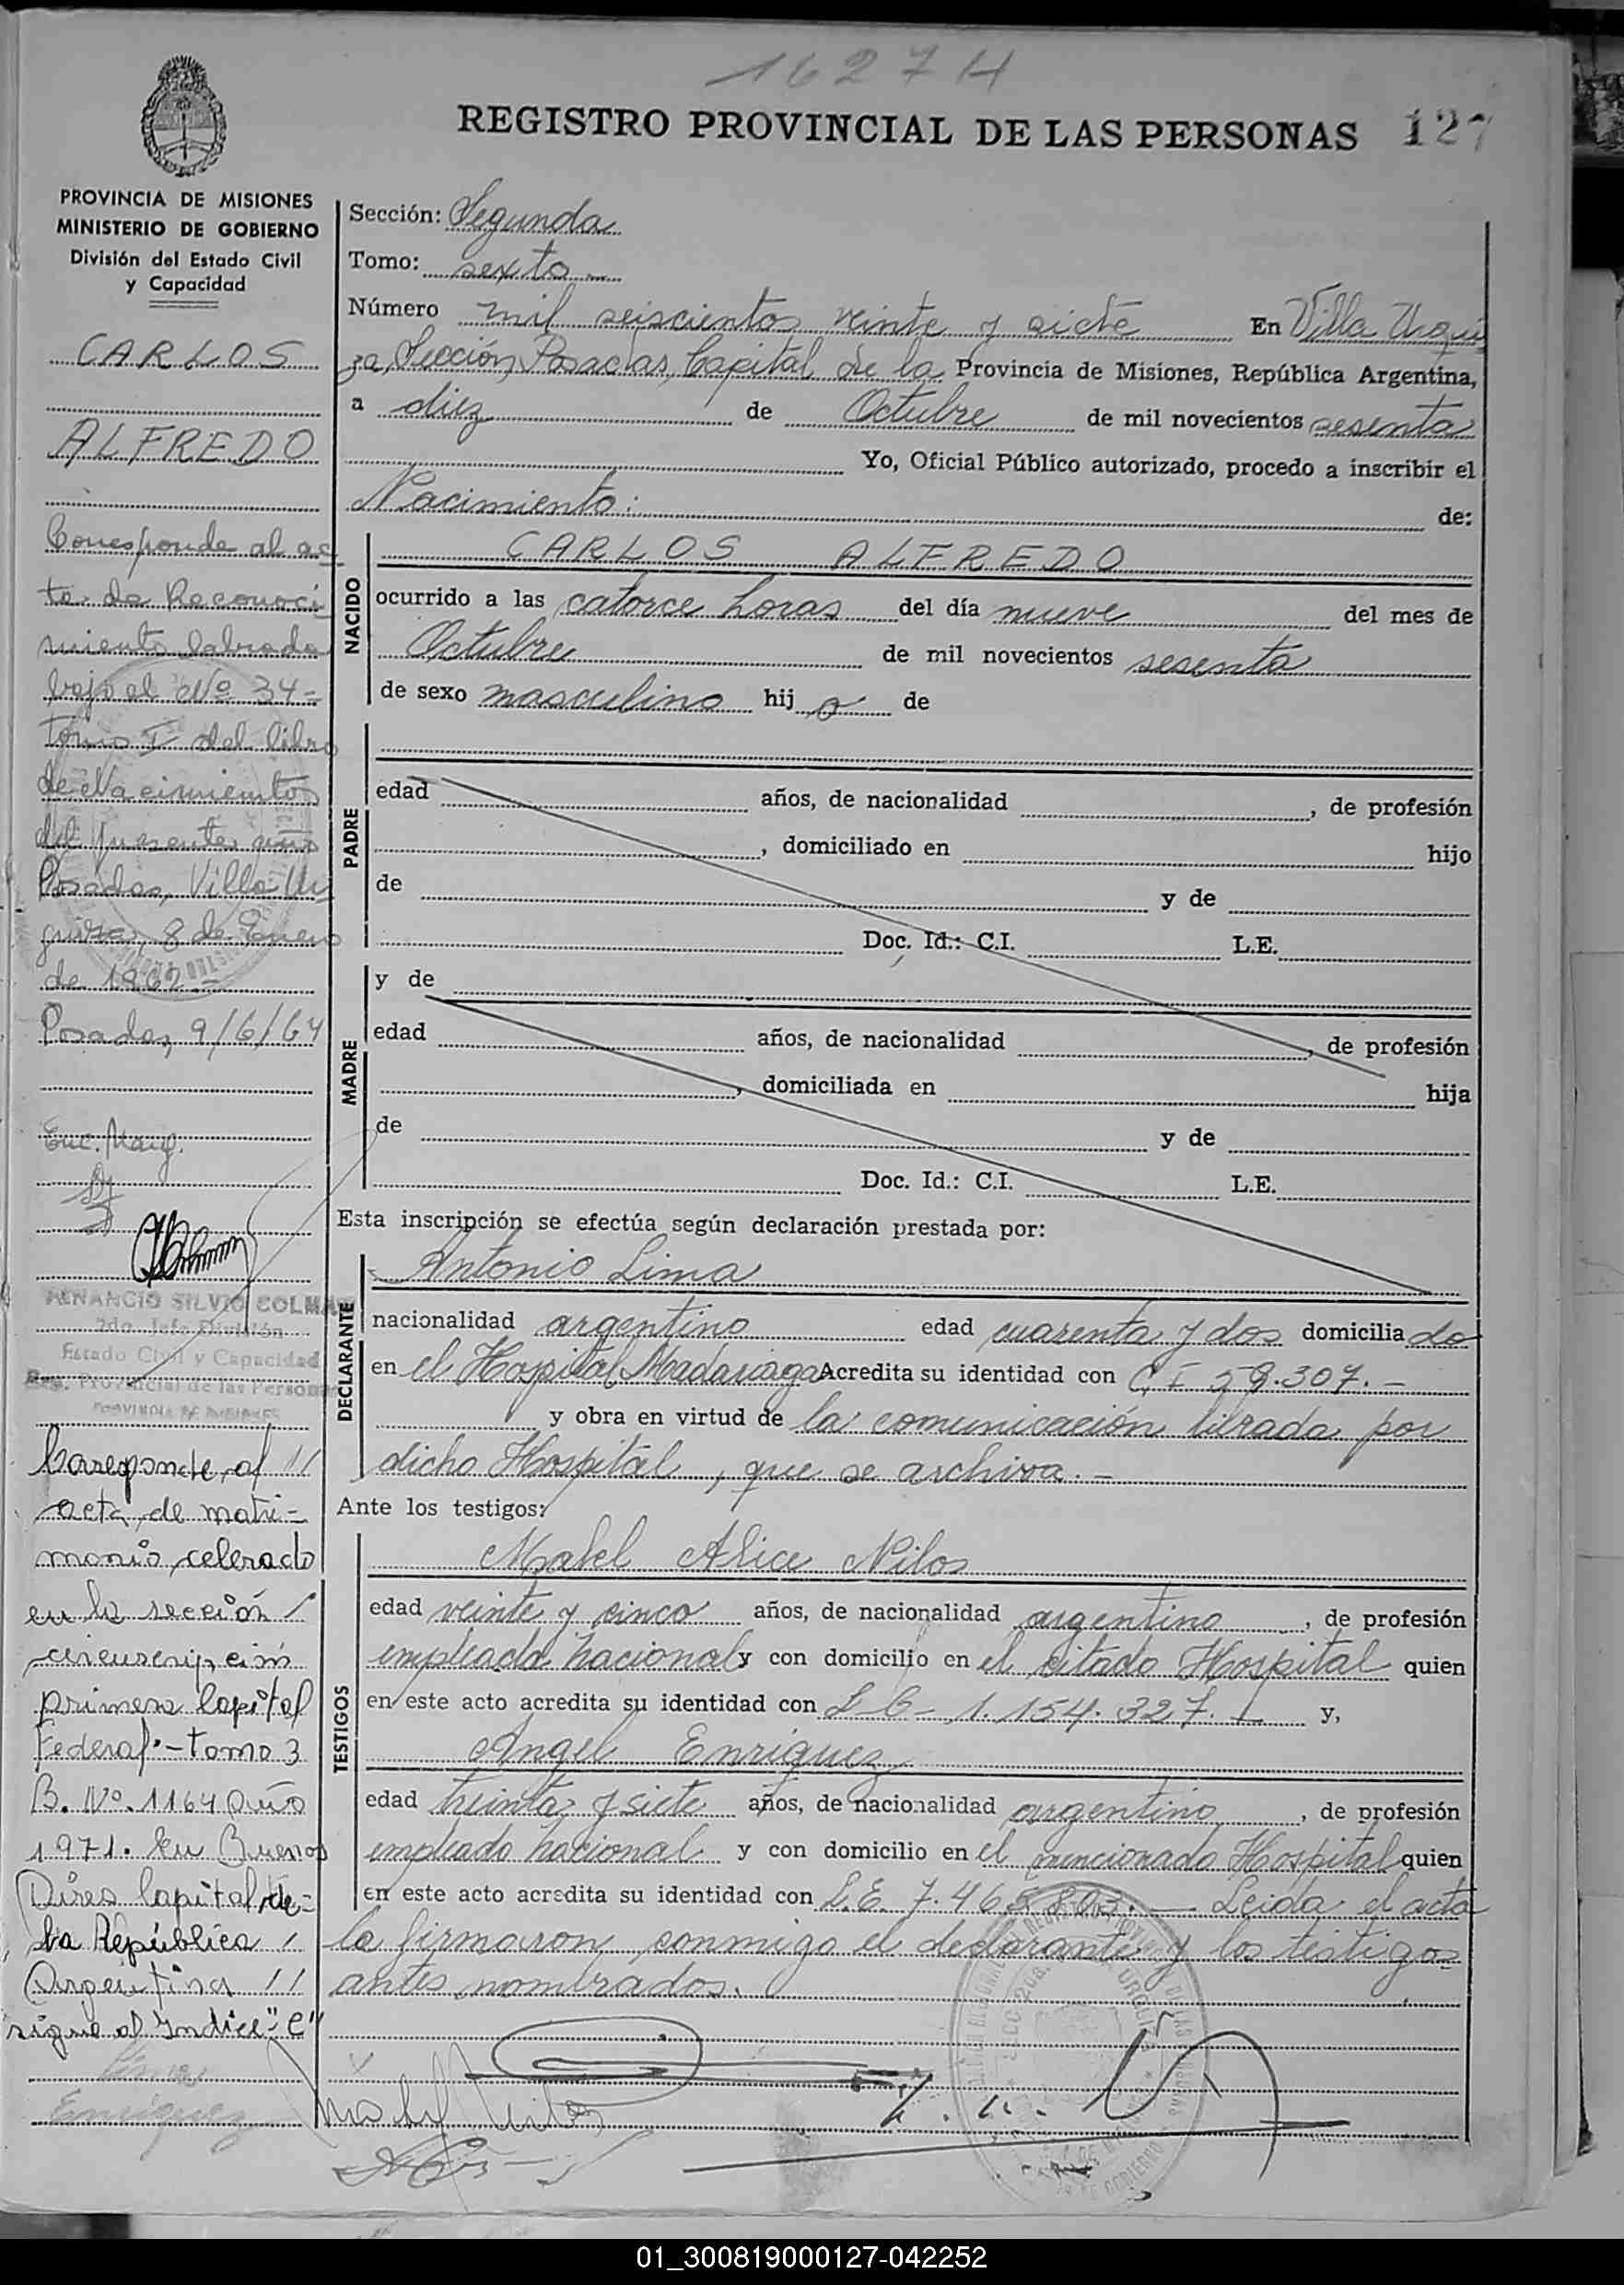 1627 H
REGISTRO PROVINCIAL DE LAS PERSONAS 127
PROVINCIA DE MISIONES
MINISTERIO DE GOBIERNO
División del Estado Civil
y Capacidad
CARLOS
ALFREDO
Corresponde al ac
ta de Reconoci
miento labrada
bajo el Nº 34-
tomo I del libro
de Nacimientos
del presente año
Posadas, Villa Ur
quiza, 8 de Enero
de 1962.-
Posadas, 9/6/64
Enc. Marg.
VENANCIO SILVIO COLMAN
2do. Jefe División
Estado Civil y Capacidad
Reg. Provincial de las Personas
PROVINCIA DE MISIONES
Coresponde al //
acta de matri-
monio celerado
en la sección /
circunscripción
primera Capital
Federal.-tomo 3
B. Nº. 1164 año
1971. En Buenos
Aires Capital de-
la República /
Argentina //
sigue al Indice "C"
Lima
Enriquez
Sección: Segunda
Tomo: sexto -
Número mil seiscientos veinte y siete En Villa Urqui
za, Sección, Posadas, Capital de la Provincia de Misiones, República Argentina,
a diez de Octubre de mil novecientos sesenta
Yo, Oficial Público autorizado, procedo a inscribir el
Nacimiento: de:
NACIDO
CARLOS ALFREDO
ocurrido a las catorce horas del día nueve del mes de
Octubre de mil novecientos sesenta
de sexo masculino hij o de
PADRE
edad años, de nacionalidad , de profesión
, domiciliado en hijo
de y de
Doc. Id.: C.I. L.E.
MADRE
y de
edad años, de nacionalidad , de profesión
, domiciliada en hija
de y de
Doc. Id.: C.I. L.E.
Esta inscripción se efectúa según declaración prestada por:
DECLARANTE
Antonio Lima
nacionalidad argentino edad cuarenta y dos domicilia do
en el Hospital Madariaga Acredita su identidad con C. I 59.307.-
y obra en virtud de la comunicación librada por
dicho Hospital, que se archiva.-
Ante los testigos:
TESTIGOS
Mabel Alice Nilos
edad veinte y cinco años, de nacionalidad argentino, de profesión
empleada nacional y con domicilio en el citado Hospital quien
en este acto acredita su identidad con L C- 1.154.327.- y,
Angel Enriquez
edad treinta y siete años, de nacionalidad argentino, de profesión
empleado nacional y con domicilio en el mencionado Hospital quien
en este acto acredita su identidad con L.E. 7.465.803.- Leida el acta
la firmaron conmigo el declarante y los testigos
antes nombrados.
01_300819000127-042252